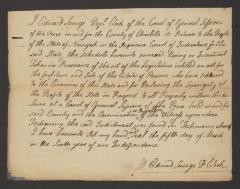 I Edward Savage Dep.y Clerk of the Court of General Sessions
of the Peace in and for the County of Charlotte do Return to the People
of the State of New York in the Supreme Court of Judicature for the
said State, the Schedule hereunto annexed Having an Indictment
Taken in Pursuance of the act of the Legislature intitled an act for
the forfeiture and Sale of the Estates of Persons who have adhered
to the Enemies of this State and for Declaring the Sovereignty of
the People of this State in Respect to all Property within the
Same at a Court of General Sessions of the Peace held in and for
said County and the Examination of the Witness upon whose
Testimony the said Indictment was found In Testimony whereof
I have hereunto Set my hand this fifth day of March
in the Sixth year of our Independence.
Edward Savage D. Clerk